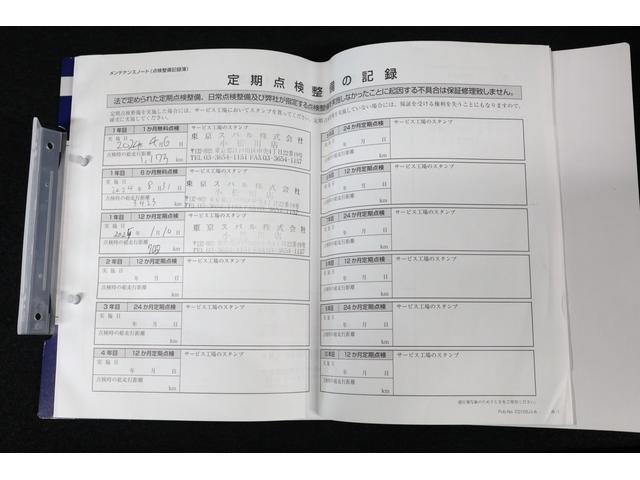 メンテナンスノート(点検整備記録簿)
定期点検整備の記録
法で定められた定期点検整備、日常点検整備及び弊社が指定する点検整備を実施しなかったことに起因する不具合は保証修理致しません。
定期点検整備を実施した場合には、サービス工場においてスタンプを貰ってください。
確実に実施してください。
していない場合には、保証を受ける権利を失うことにもなりますので、
1年目 1か月無料点検
サービス工場のスタンプ
実施日
2024年4月6日
東京スバル株式会社
小松川店
TEL 03-3654-1151 FAX 03-3654-1157
点検時の総走行距離
1,173 km
1年目 6か月無料点検
サービス工場のスタンプ
実施日
2024年8月31日
東京スバル株式会社
小松川店
点検時の総走行距離
km
1年目 12か月定期点検
サービス工場のスタンプ
実施日
2025年1月10日
東京スバル株式会社
小松川店
点検時の総走行距離
km
2年目 12か月定期点検
サービス工場のスタンプ
実施日
年 月 日
点検時の総走行距離
km
3年目 24か月定期点検
サービス工場のスタンプ
実施日
年 月 日
点検時の総走行距離
km
4年目 12か月定期点検
サービス工場のスタンプ
実施日
年 月 日
点検時の総走行距離
km
24か月定期点検
サービス工場のスタンプ
年 月 日
km
12か月定期点検
サービス工場のスタンプ
年 月 日
km
24か月定期点検
サービス工場のスタンプ
年 月 日
km
12か月定期点検
サービス工場のスタンプ
年 月 日
km
24か月定期点検
サービス工場のスタンプ
年 月 日
km
12か月定期点検
サービス工場のスタンプ
年 月 日
km